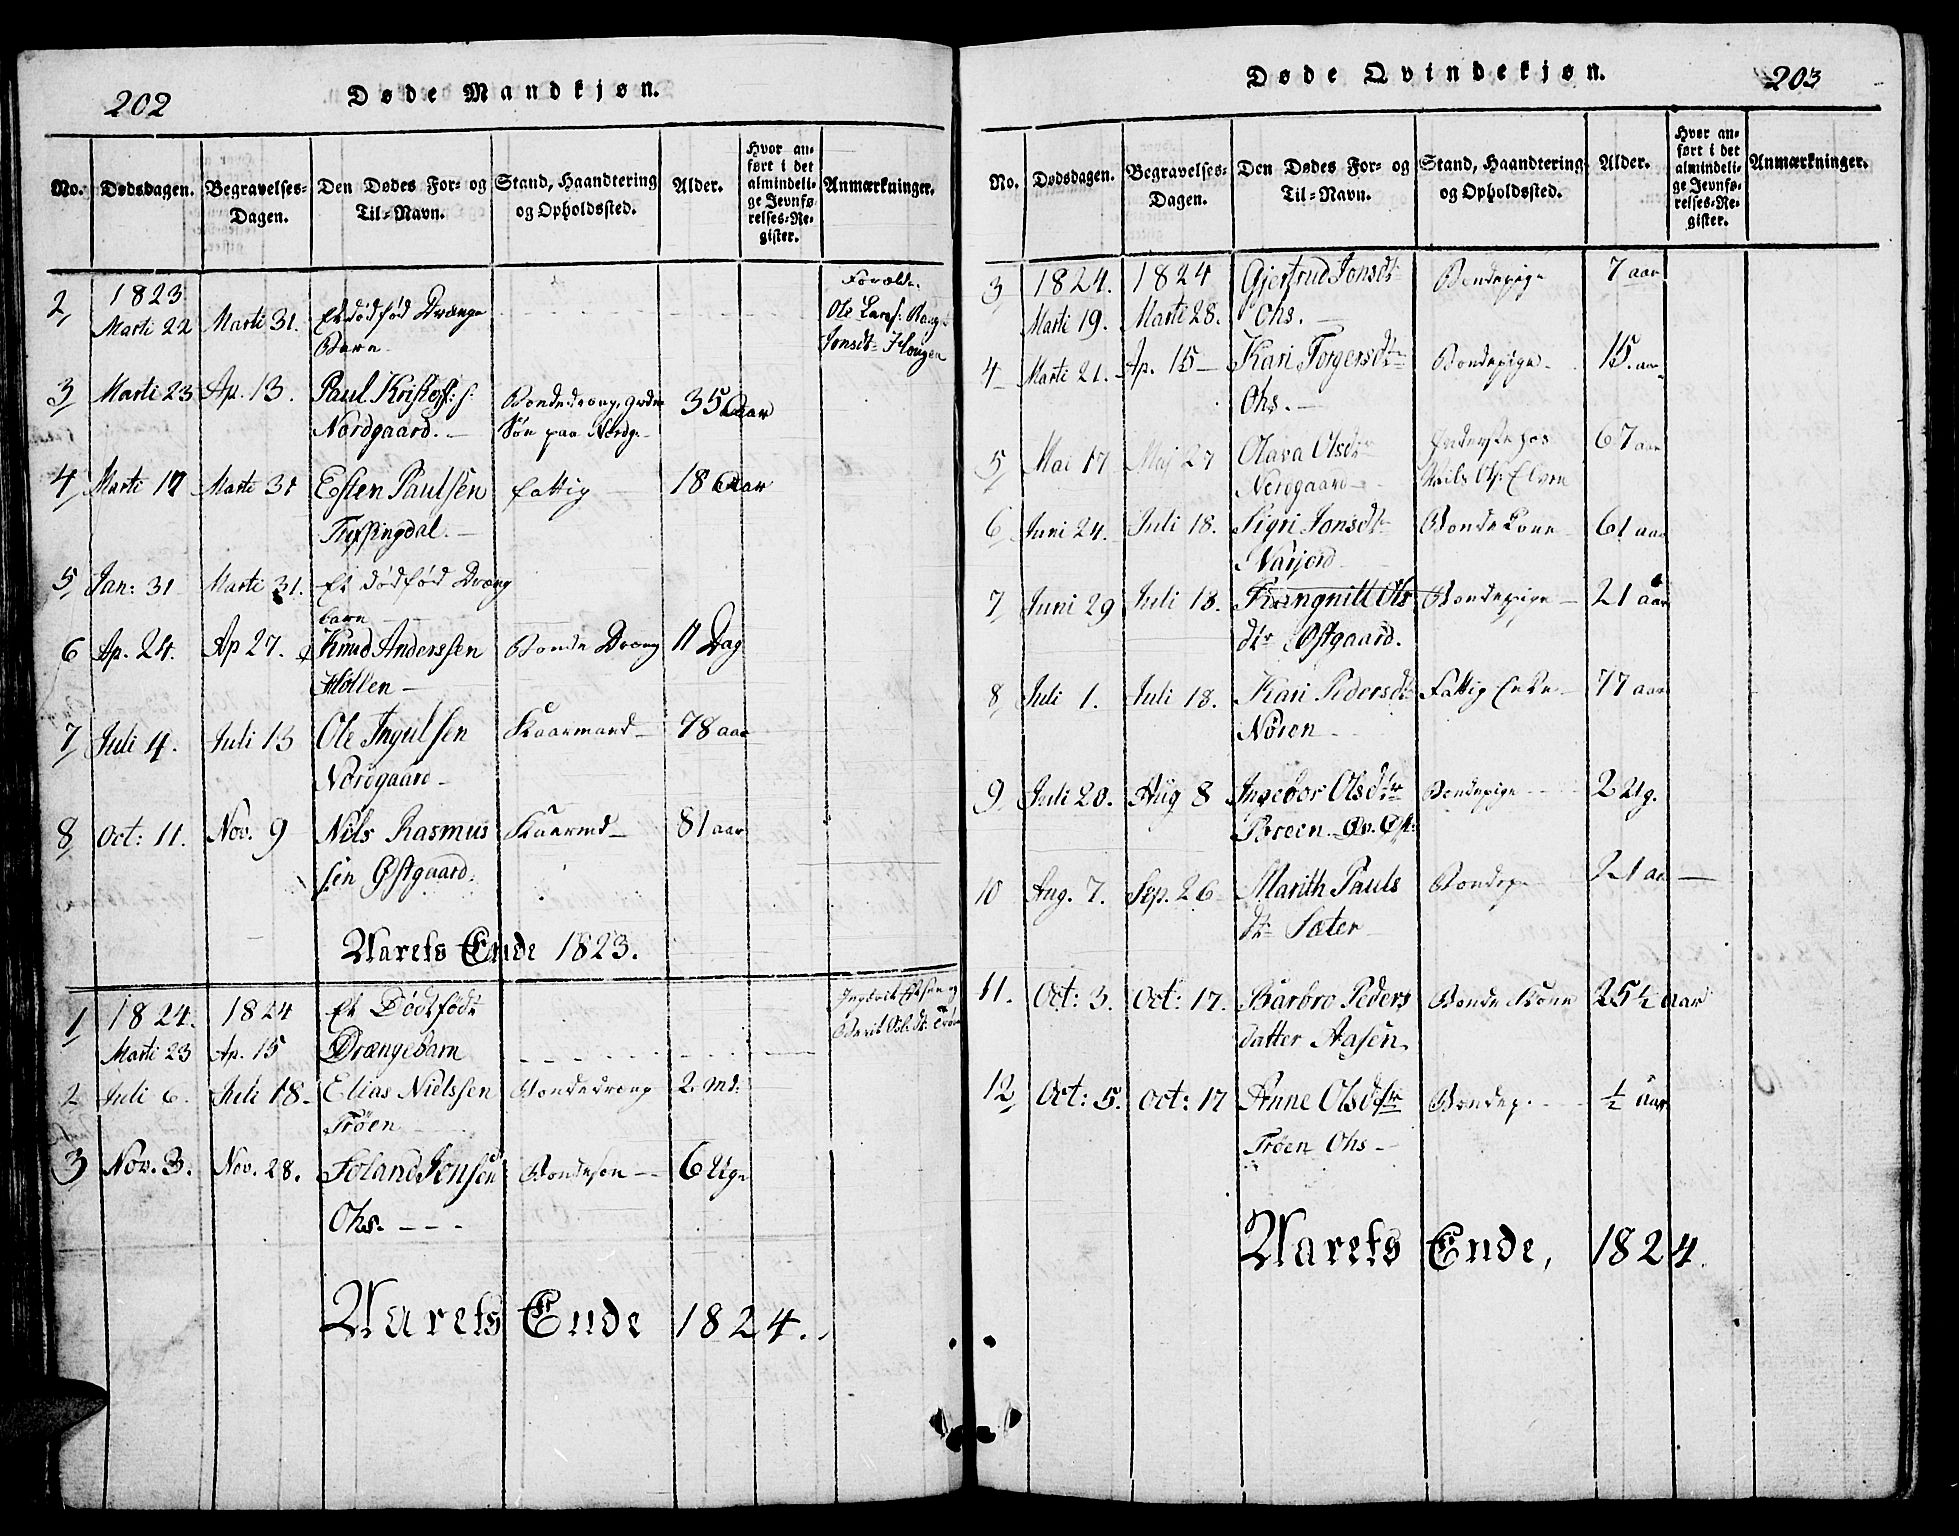 202
Døde Mandkjøn.
No. Dødsdagen. Begravelses-Dagen. Den Dødes For- og Til-Navn. Stand, Haandtering og Opholdssted. Alder. Hvor anført i det almindelige Jevnførelses-Register. Anmærkninger.
2 1823 Marti 22 Marti 31. Et dødfød Drænge Barn Forældr. Ole Lars: Jonsdt Hougen
3 Marti 23 Ap. 13. Paul Kristoff: s: Nordgaard. Bondedreng, Søn paa Nordg. 35 Aar
4 Marti 17 Marti 31 Esten Paulsen fattig 18 Aar
5 Jan: 31 Marti 31. Et dødfød Dræng barn
6 Ap. 24. Ap 27. Knud Anderssen Hollen Bonde Dreng 11 Dag
7 Juli 4. Juli 13 Ole Ingulsen Nordgaard Kaarmand 78 aar
8 Oct: 11. Nov. 9 Nils Rasmus sen Østgaard. Kaarmd 81 aar
Aarets Ende 1823.
1 1824. Marti 23 1824 Ap. 15 Et Dødfødt Drængebarn
2 Juli 6. Juli 18. Elias Nielssen Trøen Bondedreng 2 Md:
3 Nov. 3. Nov. 28. Joland Jonsen Ohs. Bondesøn 6 Uge
Aarets Ende 1824.
Døde Qvindekjøn.
203
No. Dødsdagen. Begravelses-Dagen. Den Dødes For- og Til-Navn. Stand, Haandtering og Opholdssted. Alder. Hvor anført i det almindelige Jevnførelses-Register. Anmærkninger.
3 1824. Marti 19. 1824 Marti 28. Gjertrud Jonsdt Ohs. Bondepige 7 aar
4 Marti 21. Ap. 15 Kari Torgersdtr Ohs. Bondepige 15 aar
5 Mai 17 Maj 27 Olava Olsdtr Nordgaard Inderste hos Nils Ols: Elven 67 aar
6 Juni 24. Juli 18. Sigri Jonsdtr Narjord Bonde Kone 61 aar
7 Juni 29 Juli 18. Rangnill Ols dtr Østgaard. Bondepige 21 aar
8 Juli 1. Juli 18. Kari Pedersdt Nøren Fattig Enke 77 aar
9 Juli 20. Aug 8 Ingebor Olsdtr Bondepige 2 Ug.
10 Aug. 7. Sep. 26 Marith Pauls dtr Sæter Bondep. 21 aar
11. Oct: 3. Oct: 17. Barbro Peders datter Aasen Bonde Kone 25½ aar
12 Oct: 5. Oct: 17 Anne Olsdatr Trøen Ohs Bondep. ½ aar
Aarets Ende, 1824.